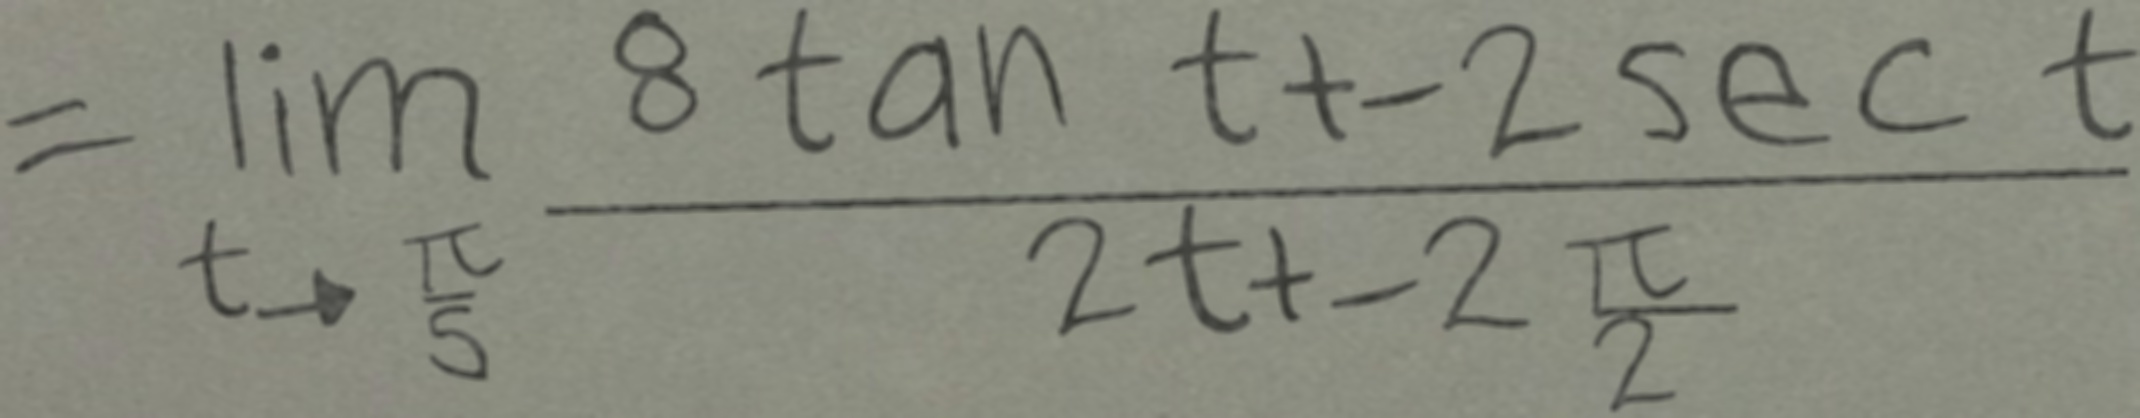 = lim_{t→\frac{π}{5}} \frac{8 tan t+-2 sec t}{2t+-2\frac{π}{2}}